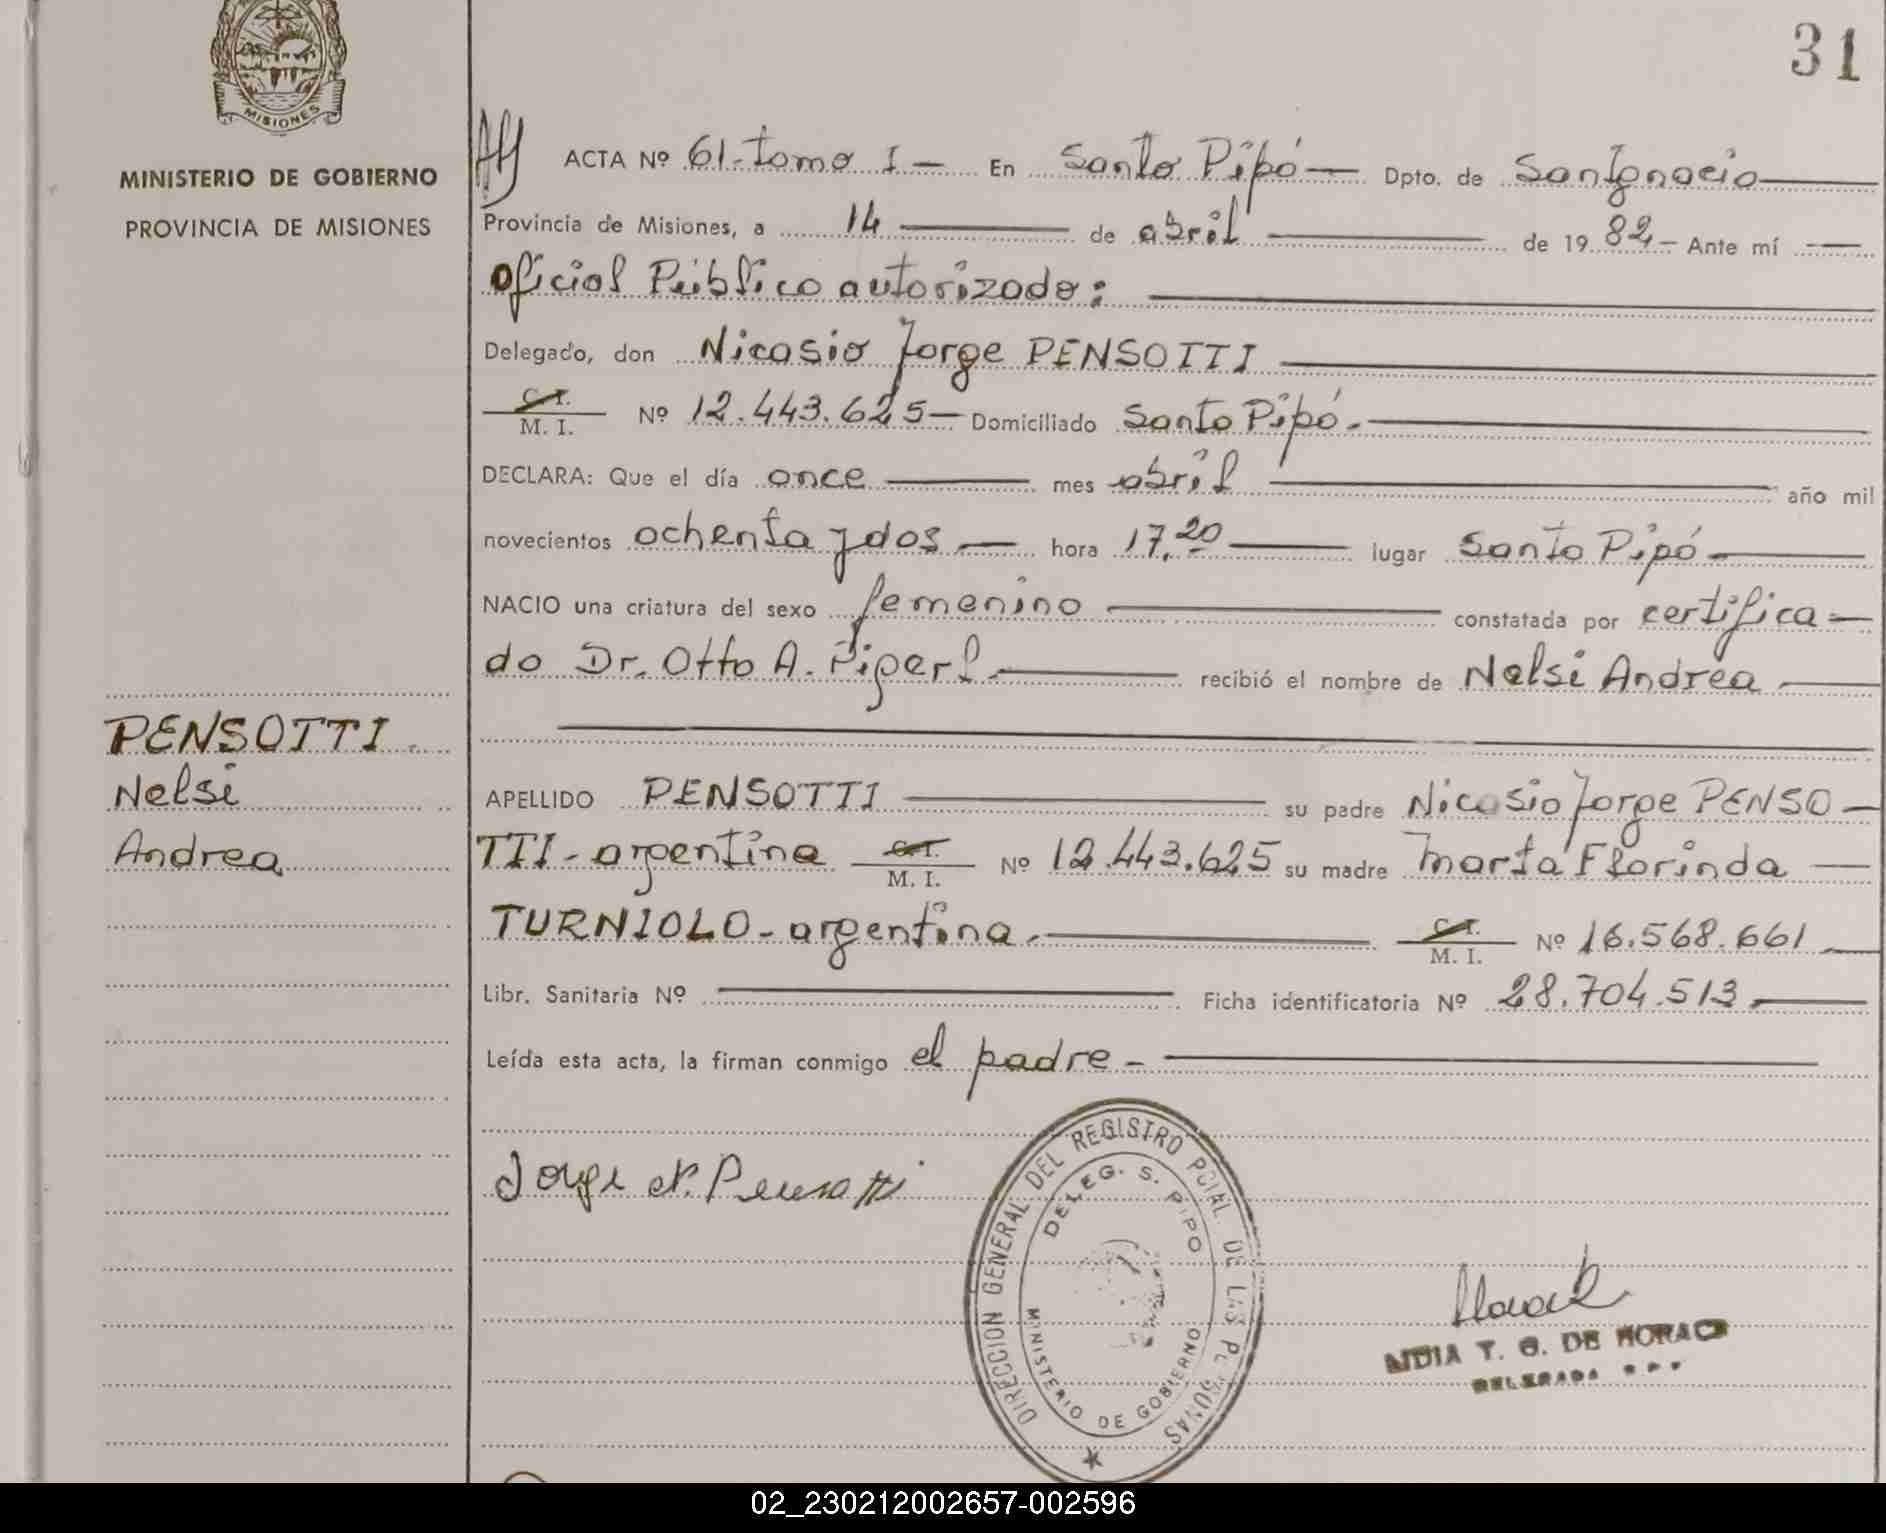 31
MISIONES
MINISTERIO DE GOBIERNO
PROVINCIA DE MISIONES
ACTA Nº 61-tomo I- En Santo Pipó- Dpto. de San Ignacio
Provincia de Misiones, a 14 de abril de 1982- Ante mí
Oficial Público autorizado:
Delegado, don Nicasio Jorge PENSOTTI
C. I.
M. I. Nº 12.443.625- Domiciliado Santo Pipó.
DECLARA: Que el día once mes abril año mil
novecientos ochenta y dos hora 17,20 lugar Santo Pipó
NACIO una criatura del sexo femenino constatada por certifica-
do Dr. Otto A. Piperl recibió el nombre de Nelsi Andrea
PENSOTTI
Nelsi
Andrea
APELLIDO PENSOTTI su padre Nicasio Jorge PENSO-
TTI-argentina C. I. M. I. Nº 12.443.625 su madre Marta Florinda
TURNIOLO-argentina. C. I. M. I. Nº 16.568.661
Libr. Sanitaria Nº Ficha identificatoria Nº 28.704.513
Leída esta acta, la firman conmigo el padre-
Jorge N. Pensotti
DIRECCION GENERAL DEL REGISTRO PCIAL. DE LAS PERSONAS
DELEG. S. PIPO
MINISTERIO DE GOBIERNO
LIDIA T. G. DE HORAC
DELEGADA
02_230212002657-002596